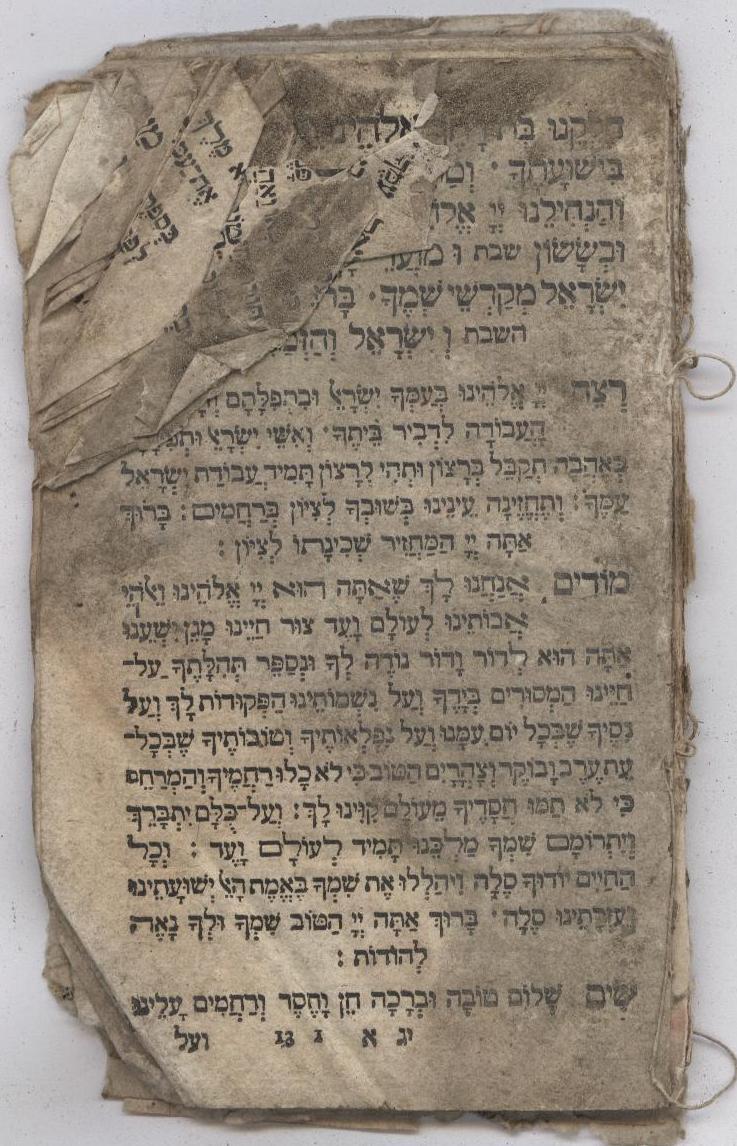 חֶלְקֵנוּ אֱלֹהֵינוּ
בִּישׁוּעָתֶךָ
וְהַנְחִילֵנוּ יְיָ
וּבְשָׂשׂוֹן שבת ו
יִשְׂרָאֵל מְקַדְּשֵׁי שְׁמֶךָ׃
השבת וְיִשְׂרָאֵל
רְצֵה יְיָ אֱלֹהֵינוּ בְּעַמְּךָ יִשְׂרָאֵ וּבִתְפִלָּתָם
הָעֲבוֹדָה לִדְבִיר בֵּיתֶךָ׃ וְאִשֵּׁי יִשְׂרָאֵ
בְּאַהֲבָה תְקַבֵּל בְּרָצוֹן וּתְהִי לְרָצוֹן תָּמִיד עֲבוֹדַת יִשְׂרָאֵל
עַמֶּךָ׃ וְתֶחֱזֶינָה עֵינֵינוּ בְּשׁוּבְךָ לְצִיּוֹן בְּרַחֲמִים׃ בָּרוּךְ
אַתָּה יְיָ הַמַּחֲזִיר שְׁכִינָתוֹ לְצִיּוֹן׃
מוֹדִים אֲנַחְנוּ לָךְ שֶׁאַתָּה הוּא יְיָ אֱלֹהֵינוּ וֵאלֹהֵי
אֲבוֹתֵינוּ לְעוֹלָם וָעֶד צוּר חַיֵּינוּ מָגֵן יִשְׁעֵנוּ
אַתָּה הוּא לְדוֹר וָדוֹר נוֹדֶה לְּךָ וּנְסַפֵּר תְּהִלָּתֶךָ עַל־
חַיֵּינוּ הַמְּסוּרִים בְּיָדֶךָ וְעַל נִשְׁמוֹתֵינוּ הַפְּקוּדוֹת לָךְ וְעַל
נִסֶּיךָ שֶׁבְּכָל יוֹם עִמָּנוּ וְעַל נִפְלְאוֹתֶיךָ וְטוֹבוֹתֶיךָ שֶׁבְּכָל־
עֵת עֶרֶב וָבוֹקֶר וְצָהֳרָיִם הַטּוֹב כִּי לֹא כָלוּ רַחֲמֶיךָ וְהַמְרַחֵם
כִּי לֹא תַמּוּ חֲסָדֶיךָ מֵעוֹלָם קִוִּינוּ לָךְ׃ וְעַל־כֻּלָּם יִתְבָּרֵךְ
וְיִתְרוֹמֵם שִׁמְךָ מַלְכֵּנוּ תָּמִיד לְעוֹלָם וָעֶד׃ וְכָל
הַחַיִּים יוֹדוּךָ סֶּלָה וִיהַלְלוּ אֶת שִׁמְךָ בֶּאֱמֶת הָאֵ יְשׁוּעָתֵינוּ
וְעֶזְרָתֵינוּ סֶלָה׃ בָּרוּךְ אַתָּה יְיָ הַטּוֹב שִׁמְךָ וּלְךָ נָאֶה
לְהוֹדוֹת׃
שִׂים שָׁלוֹם טוֹבָה וּבְרָכָה חֵן וָחֶסֶד וְרַחֲמִים עָלֵינוּ
יג א 1 13 ועל